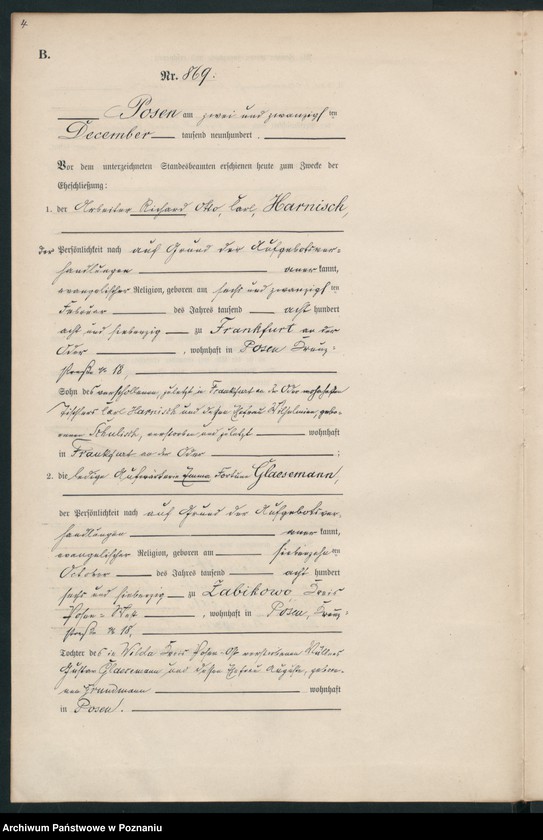 4
B.
Nr. 869.
Posen am zwei und zwanzigsten
December tausend neunhundert
Vor dem unterzeichneten Standesbeamten erschienen heute zum Zwecke der
Eheschließung:
1. der Arbeiter Richard Otto, Carl, Harnisch,
der Persönlichkeit nach auf Grund der Aufgebotsver-
handlungen anerkannt,
evangelischer Religion, geboren am sechs und zwanzigsten
Februar des Jahres tausend acht hundert
acht und siebenzig zu Frankfurt an der
Oder, wohnhaft in Posen Kreuz-
straße № 18,
Sohn des verschollenen, zuletzt in Frankfurt an der Oder wohnhaften
Tischlers Carl Harnisch und dessen Ehefrau Wilhelmine, gebo-
renen, verstorben und zuletzt wohnhaft
in Frankfurt an der Oder;
2. die ledige Aufwärterin Emma Glaesemann,
der Persönlichkeit nach auf Grund der Aufgebotsver-
handlungen anerkannt,
evangelischer Religion, geboren am siebzehnten
October des Jahres tausend acht hundert
sechs und siebenzig zu Zabikowo, Kreis
Posen-West, wohnhaft in Posen, Kreuz-
straße № 18,
Tochter des in Kreis Posen-Ost verstorbenen Müllers
Gustav Glaesemann und dessen Ehefrau Auguste, gebore-
nen Grundmann wohnhaft
in Posen.
Archiwum Państwowe w Poznaniu